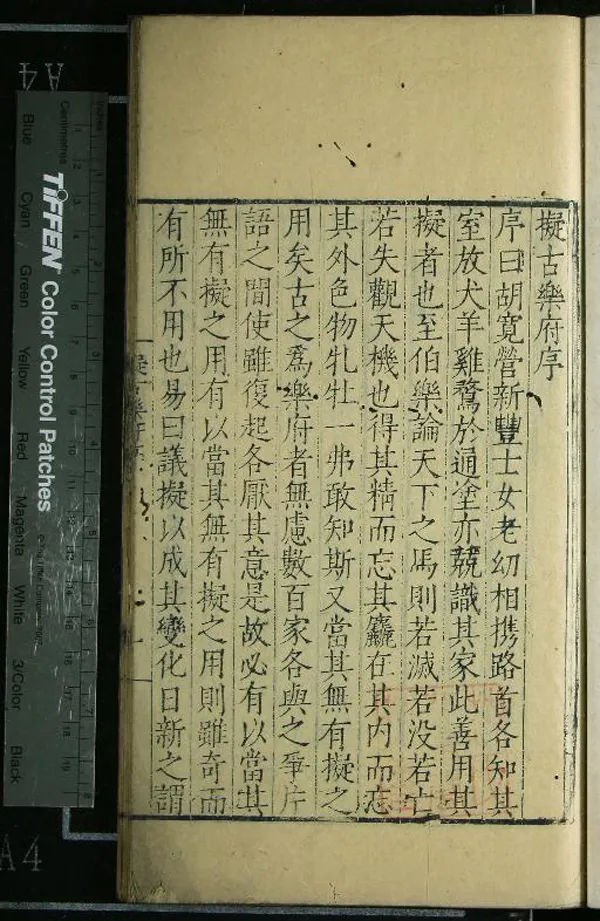 擬古樂府序
序曰胡寛營新豐士女老幼相携路首各知其
室放犬羊雞鶩於通塗亦競識其家此善用其
擬者也至伯樂論天下之馬則若滅若没若亡
若失觀天機也得其精而忘其麤在其内而忘
其外色物牝牡一弗敢知斯又當其無有擬之
用矣古之爲樂府者無慮數百家各與之爭片
語之間使雖復起各厭其意是故必有以當其
無有擬之用有以當其無有擬之用則雖奇而
有所不用也易曰議擬以成其變化日新之謂
A4
TIFFEN Color Control Patches
Centimetres
Inches
Blue
Cyan
Green
Yellow
Red
Magenta
White
3/Color
Black
A4